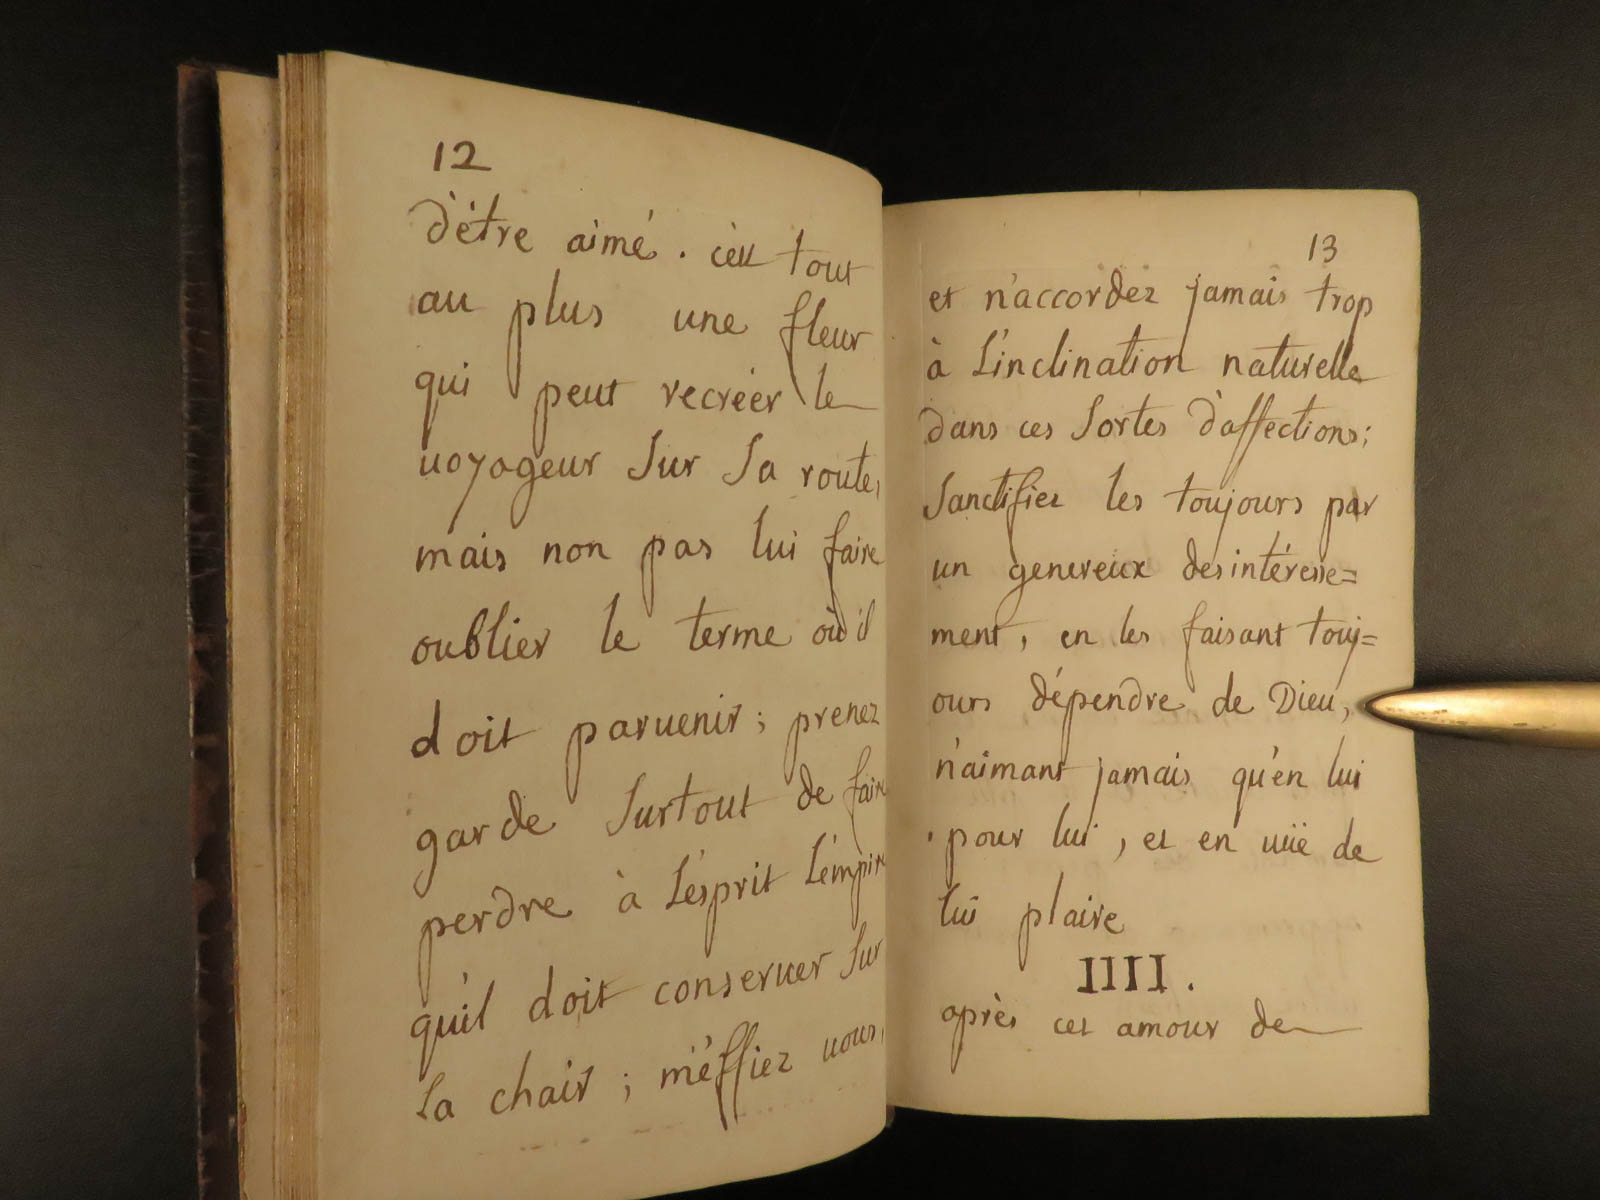 12
d'être aimé. c'est tout
au plus une fleur
qui peut recréer le
uoyageur sur sa route,
mais non pas lui faire
oublier le terme où il
doit paruenir; prenez
garde surtout de faire
perdre à l'ésprit l'émpire
qu'il doit conseruer sur
la chair; méffiez uous,
13
et n'accordez jamais trop
à l'inclination naturelle
dans ces sortes d'affections;
sanctifiez les toujours par
un genereux desintéresse=
ment, en les faisant touj=
ours dépendre de Dieu,
n'aimant jamais qu'en lui
pour lui, et en uüe de
lui plaire
IIII.
après cet amour de